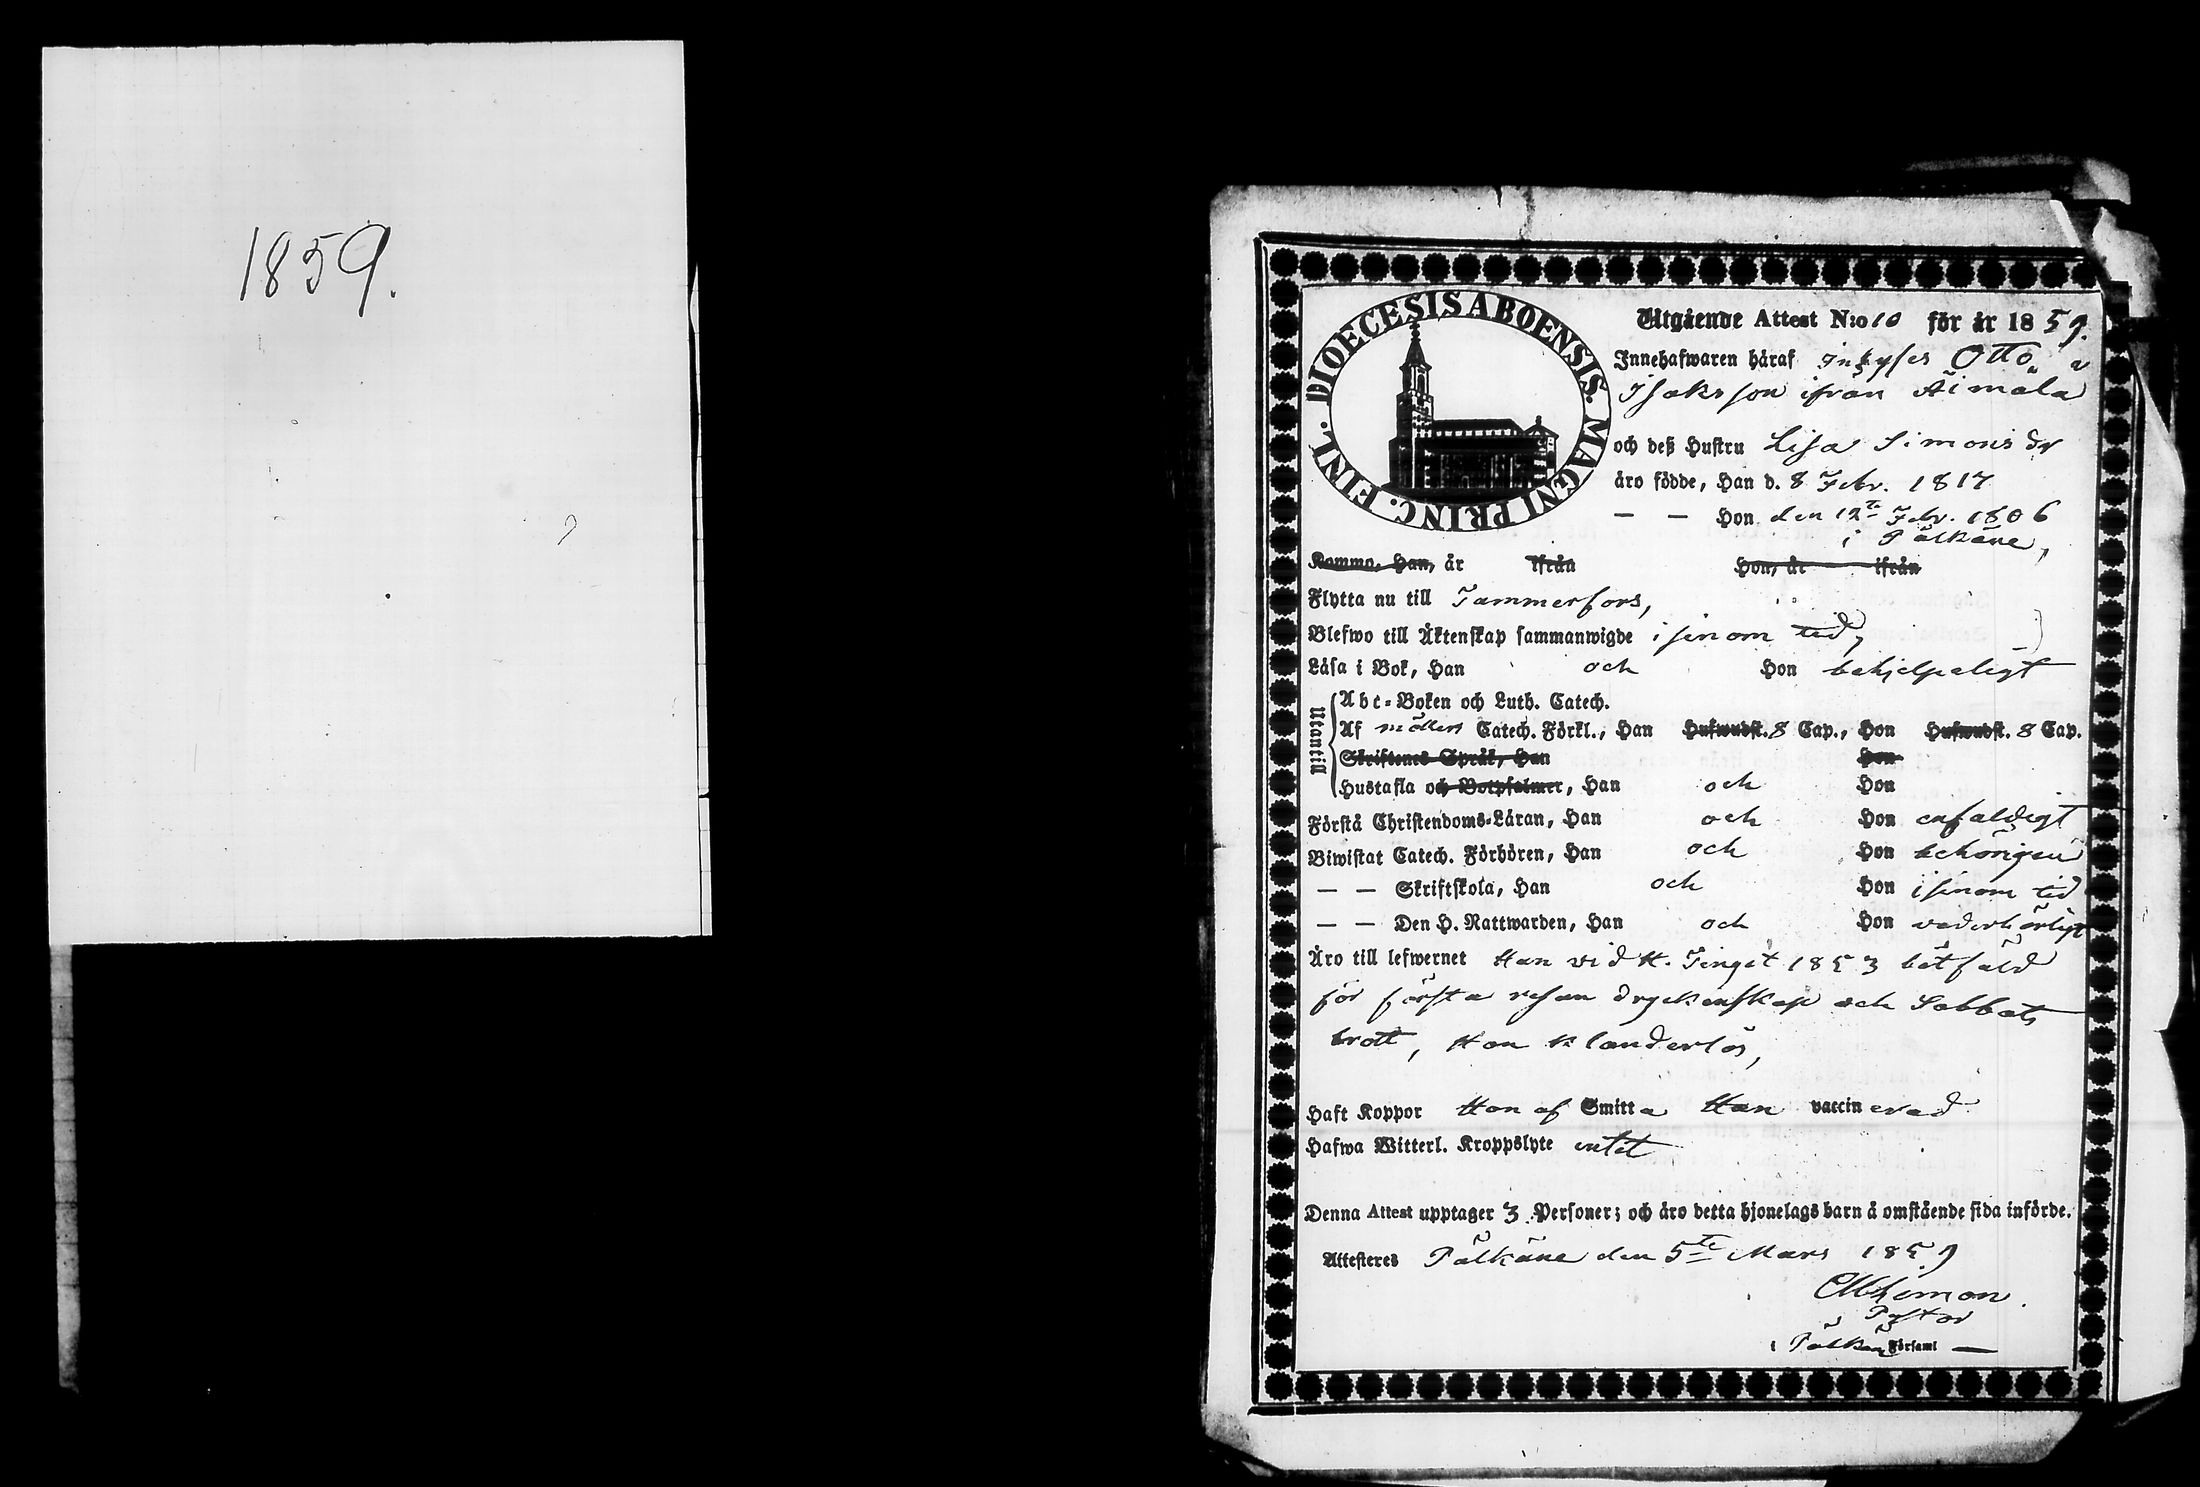 1859.
DIOECESIS ABOENSIS. MAGNI PRINC. FINL.
Utgående Attest N:o 10 för år 1859.
Innehafwaren häraf Inhyses Otto
Isaksson ifrån Äimälä
och deß Hustru Lisa Simonsdr
äro födde, Han d. 8 Febr. 1817
— — Hon den 12te Febr. 1806
i Pälkäne,
Kommo, Han, år ifrån Hon, år ifrån
Flytta nu till Tammerfors,
Blefwo till Äktenskap sammanwigde i sinom tid,
Läsa i Bok, Han och Hon behjelpeligt
Utantill
Abc-Boken och Luth. Catech.
Af Möllers Catech. Förkl., Han Hufwudst. 8 Cap., Hon Hufwudst. 8 Cap.
Skriftenes Språk, Han Hon
Hustafla och Botpsalmer, Han och Hon
Förstå Christendoms-Läran, Han och Hon enfaldigt
Biwistat Catech. Förhören, Han och Hon behörigen
— — Skriftskola, Han och Hon i sinom tid
— — Den H. Nattwarden, Han och Hon vederbörligt
Äro till lefwernet Han vid H. Tinget 1853 bötfäld
för första resan dryckenskap och Sabbats
brott, Hon klanderlös,
Haft Koppor Hon af Smitta Han vaccinerad
Hafwa Witterl. Kroppslyte intet
Denna Attest upptager 3 Personer; och äro detta hjonelags barn å omstående sida införde.
Attesteres Pälkäne den 5te Mars 1859
Pastor
i Pälkäne Församl —